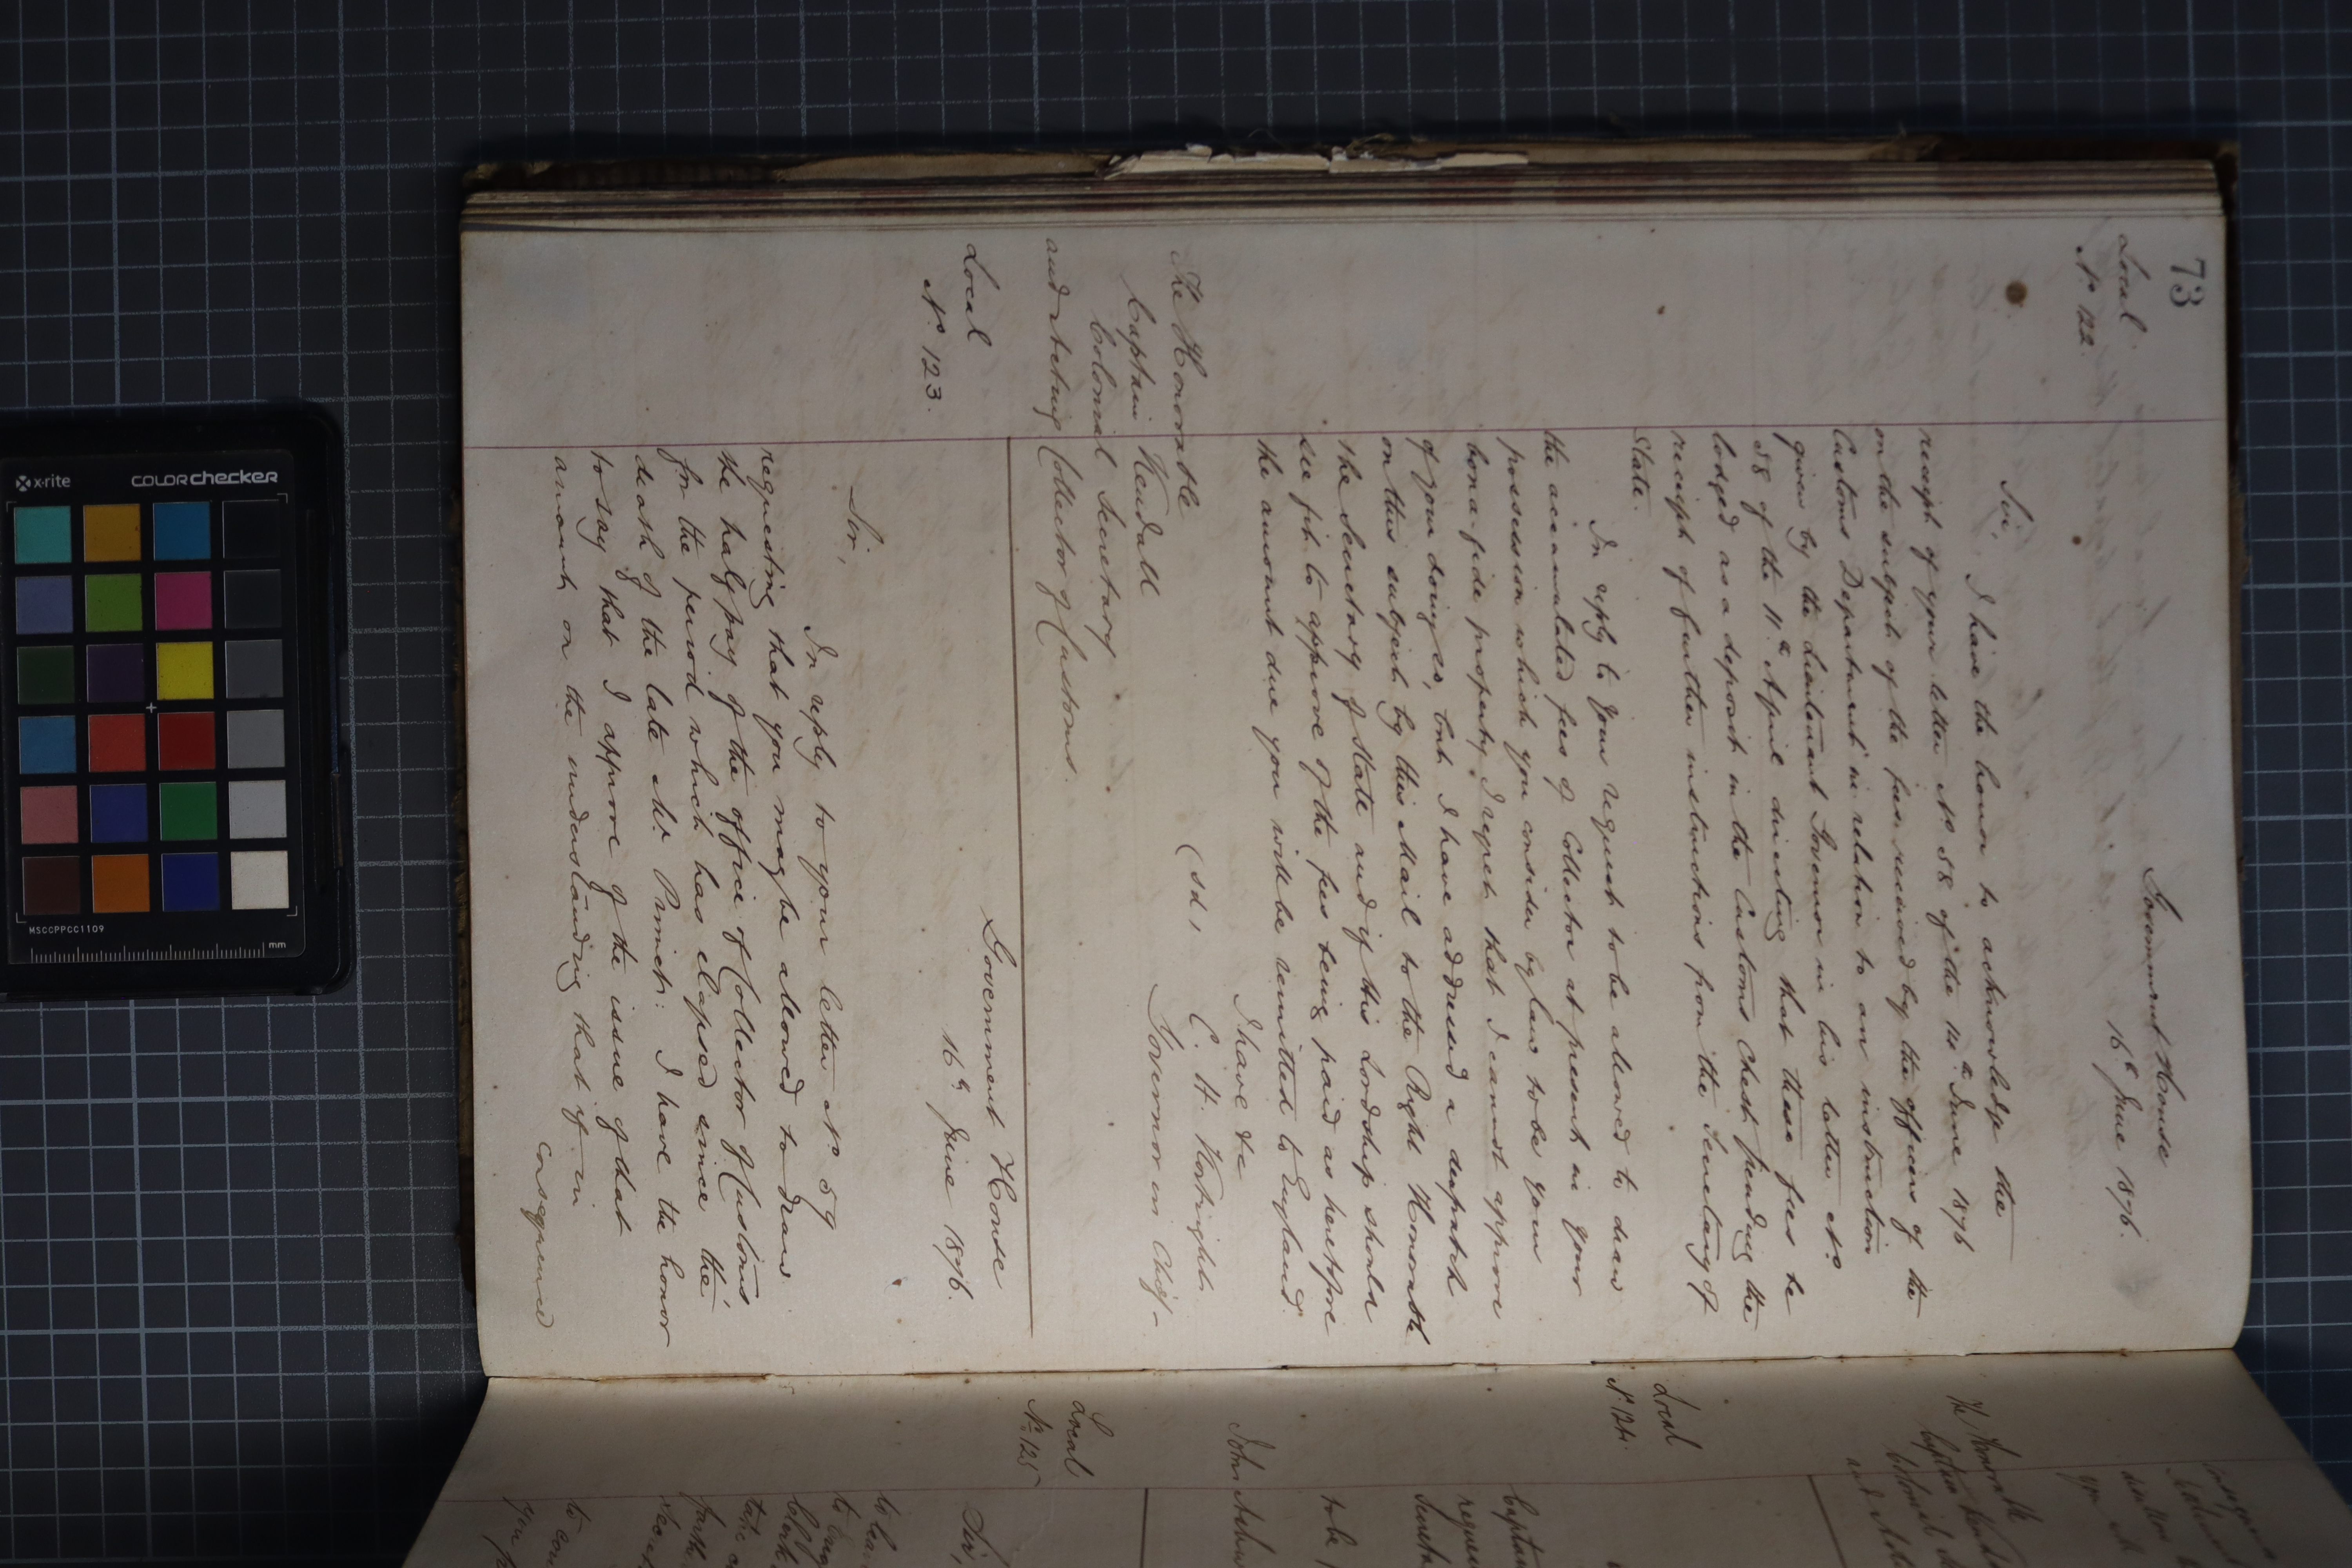 73
Local
No 122.
Government House
16th June 1876.
Sir,
I have the honor to acknowledge the
receipt of your letter No 58 of the 14th June 1876
on the subject of the fees received by the officers of the
Customs Department in relation to an instruction
given by the Lieutenant Governor in his letter No
58 of the 11th April directing that these fees be
lodged as a deposit in the Customs Chest pending the
receipt of further instructions from the Secretary of
State.
In reply to your request to be allowed to draw
the accumulated fees of Collector at present in your
possession which you consider by law to be your
bona-fide property I regret that I cannot approve
of your doing so, but I have addressed a despatch
on this subject by this Mail to the Right Honorable
the Secretary of State and if His Lordship should
see fit to approve of the fees being paid as heretofore
the amount due you will be remitted to England.
I have &c
(sd, C. H. Kortright
Governor in Chief
The Honorable
Captain Kendall
Colonial Secretary
and Acting Collector of Customs.
Local
No 123.
Government House
16th June 1876.
Sir,
In reply to your letter No 59
requesting that you may be allowed to draw
the half pay of the office of Collector of Customs
for the period which has elapsed since the
death of the late Mr I have the honor
to say that I approve of the issue of that
amount on the understanding that if in
consequence
The Honorable
Captain Kendall
Colonial
and
Local
No 124.
Captain
to be
John
Local
No 125
Sir,
to
you